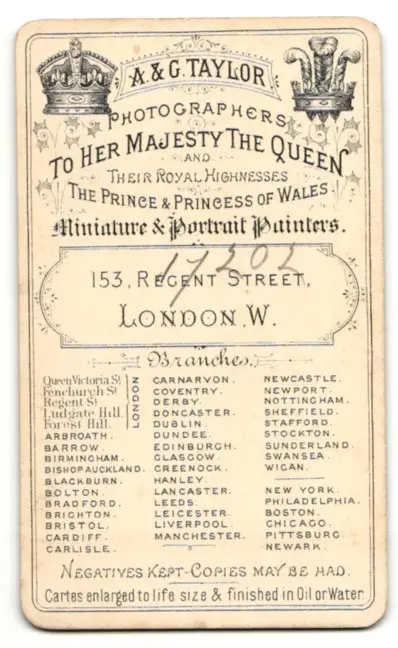 A. & G. TAYLOR
PHOTOGRAPHERS
TO HER MAJESTY THE QUEEN
AND
THEIR ROYAL HIGHNESSES
THE PRINCE & PRINCESS OF WALES.
Miniature & Portrait Painters.
17202
153, REGENT STREET,
LONDON, W.
Branches.
Queen Victoria St.
Fenchurch St.
Regent St.
Ludgate Hill.
Forest Hill.
LONDON
ARBROATH.
BARROW.
BIRMINGHAM.
BISHOP AUCKLAND.
BLACKBURN.
BOLTON.
BRADFORD.
BRIGHTON.
BRISTOL.
CARDIFF.
CARLISLE.
CARNARVON.
COVENTRY.
DERBY.
DONCASTER.
DUBLIN.
DUNDEE.
EDINBURGH.
GLASGOW.
GREENOCK.
HANLEY.
LANCASTER.
LEEDS.
LEICESTER.
LIVERPOOL.
MANCHESTER.
NEWCASTLE.
NEWPORT.
NOTTINGHAM.
SHEFFIELD.
STAFFORD.
STOCKTON.
SUNDERLAND.
SWANSEA.
WIGAN.
NEW YORK.
PHILADELPHIA.
BOSTON.
CHICAGO.
PITTSBURG.
NEWARK.
NEGATIVES KEPT-COPIES MAY BE HAD.
Cartes enlarged to life size & finished in Oil or Water